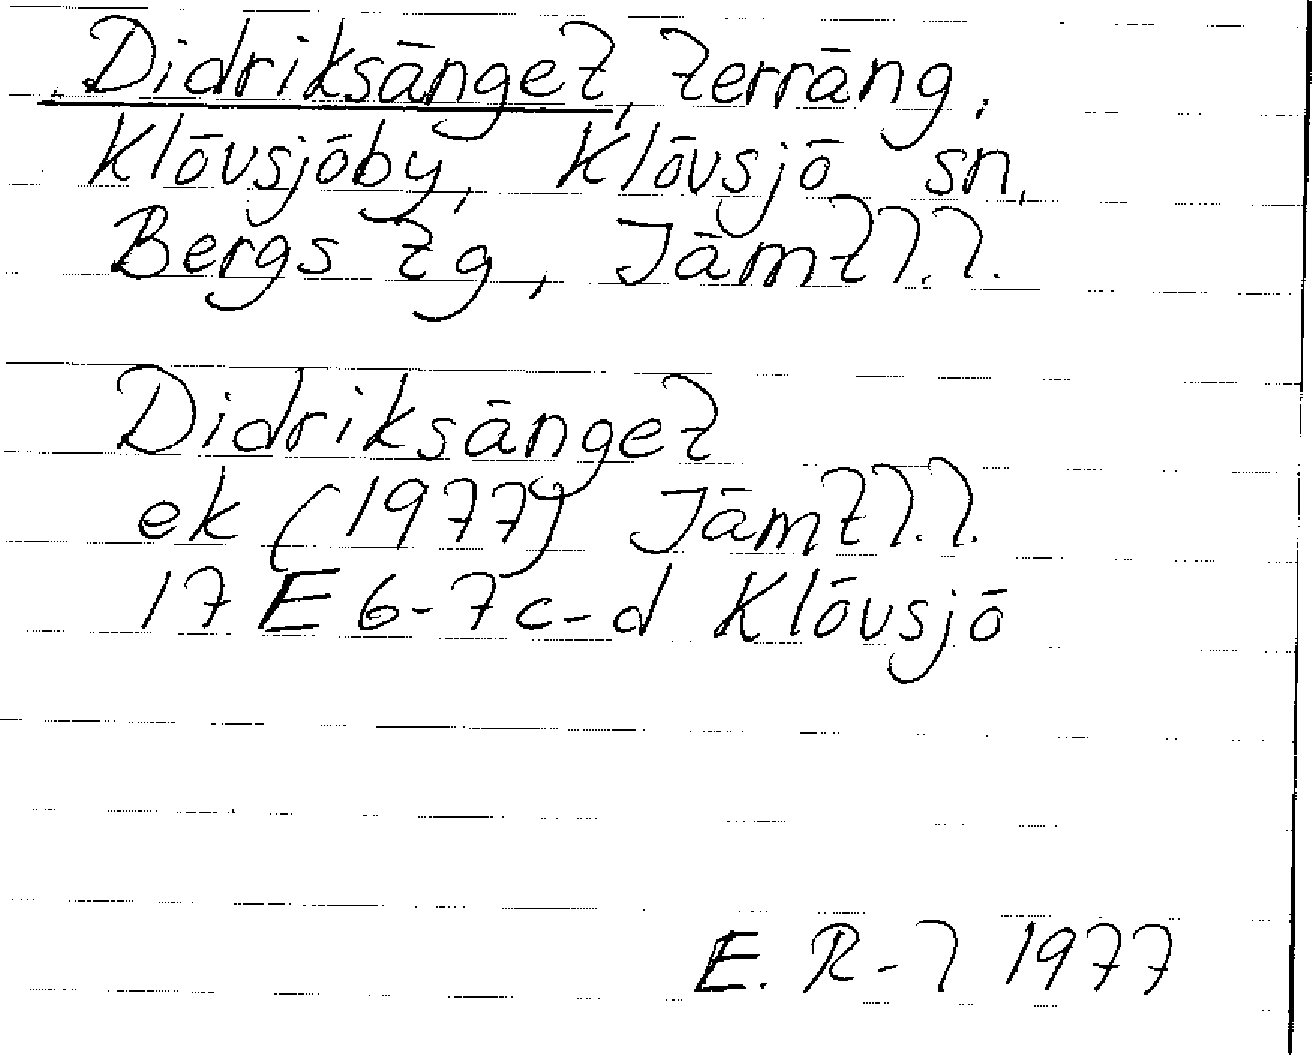 Didriksänget, terräng,
Klövsjöby, Klövsjö sn,
Bergs tg, Jämtl.l.
Didriksänget
ek (1977) Jämtl.l.
17 E 6-7c-d Klövsjö
E. R-l 1977